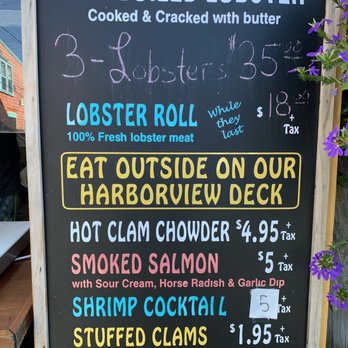 LOBSTER
Cooked & Cracked with butter
3-Lobsters $35.00
LOBSTER ROLL While they last $18.00 + Tax
100% Fresh lobster meat
EAT OUTSIDE ON OUR
HARBORVIEW DECK
HOT CLAM CHOWDER $4.95 + Tax
SMOKED SALMON $5 + Tax
with Sour Cream, Horse Radish & Garlic Dip
SHRIMP COCKTAIL 5 + Tax
STUFFED CLAMS $1.95 + Tax